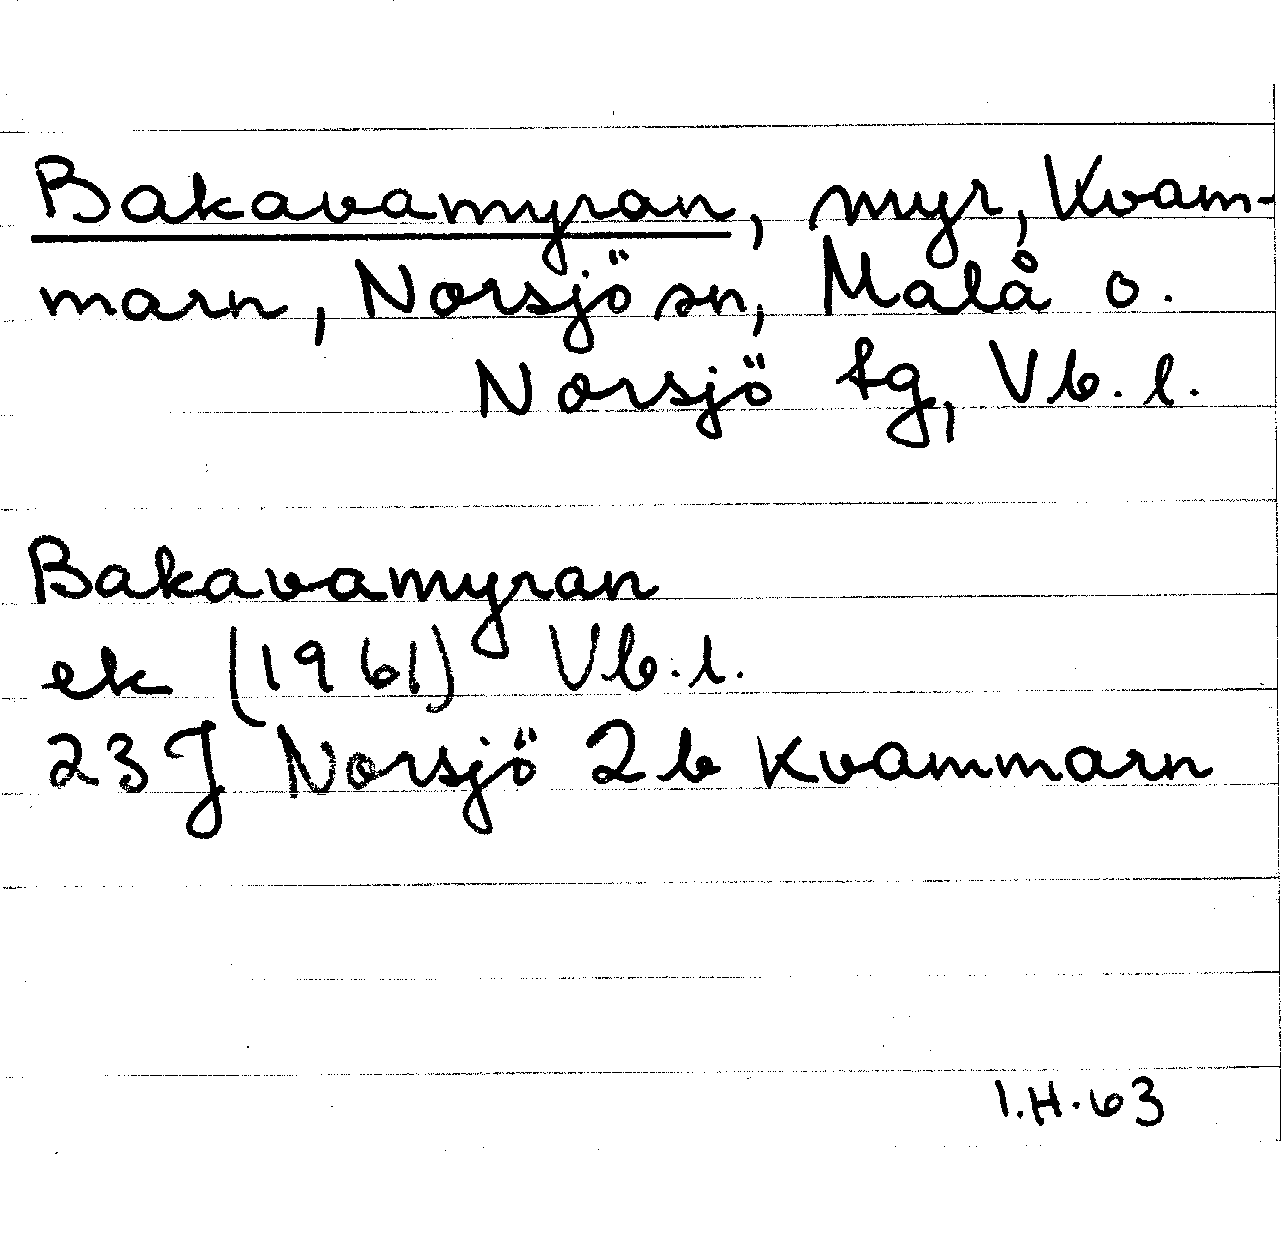 Bakavamyran, myr, Kvam-
marn, Norsjö sn, Malå o.
Norsjö tg, Vb. l.
Bakavamyran
ek (1961) Vb. l.
23 J Norsjö 2b Kvammarn
I.H. 63